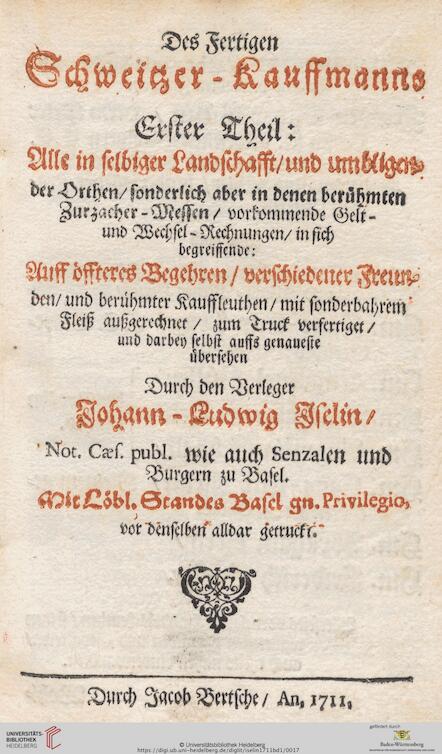 Des Fertigen
Schweitzer-Kauffmanns
Erster Theil:
Alle in selbiger Landschafft/ und umbligen-
der Orthen/ sonderlich aber in denen berühmten
Zurzacher-Messen/ vorkommende Gelt-
und Wechsel-Rechnungen/ in sich
begreiffende:
Auff öffteres Begehren/ verschiedener Freun-
den/ und berühmter Kauffleuthen/ mit sonderbahrem
Fleiß außgerechnet/ zum Truck verfertiget/
und darbey selbst auffs genaueste
übersehen
Durch den Verleger
Johann-Ludwig Iselin/
Not. Cæs. publ. wie auch Senzalen und
Burgern zu Basel.
Mit Löbl. Standes Basel gn. Privilegio,
vor denselben alldar getruckt.
Durch Jacob Bertsche/ An, 1711,
UNIVERSITÄTS-
BIBLIOTHEK
HEIDELBERG
© Universitätsbibliothek Heidelberg
https://digi.ub.uni-heidelberg.de/diglit/iselin1711bd1/0017
gefördert durch
Baden-Württemberg